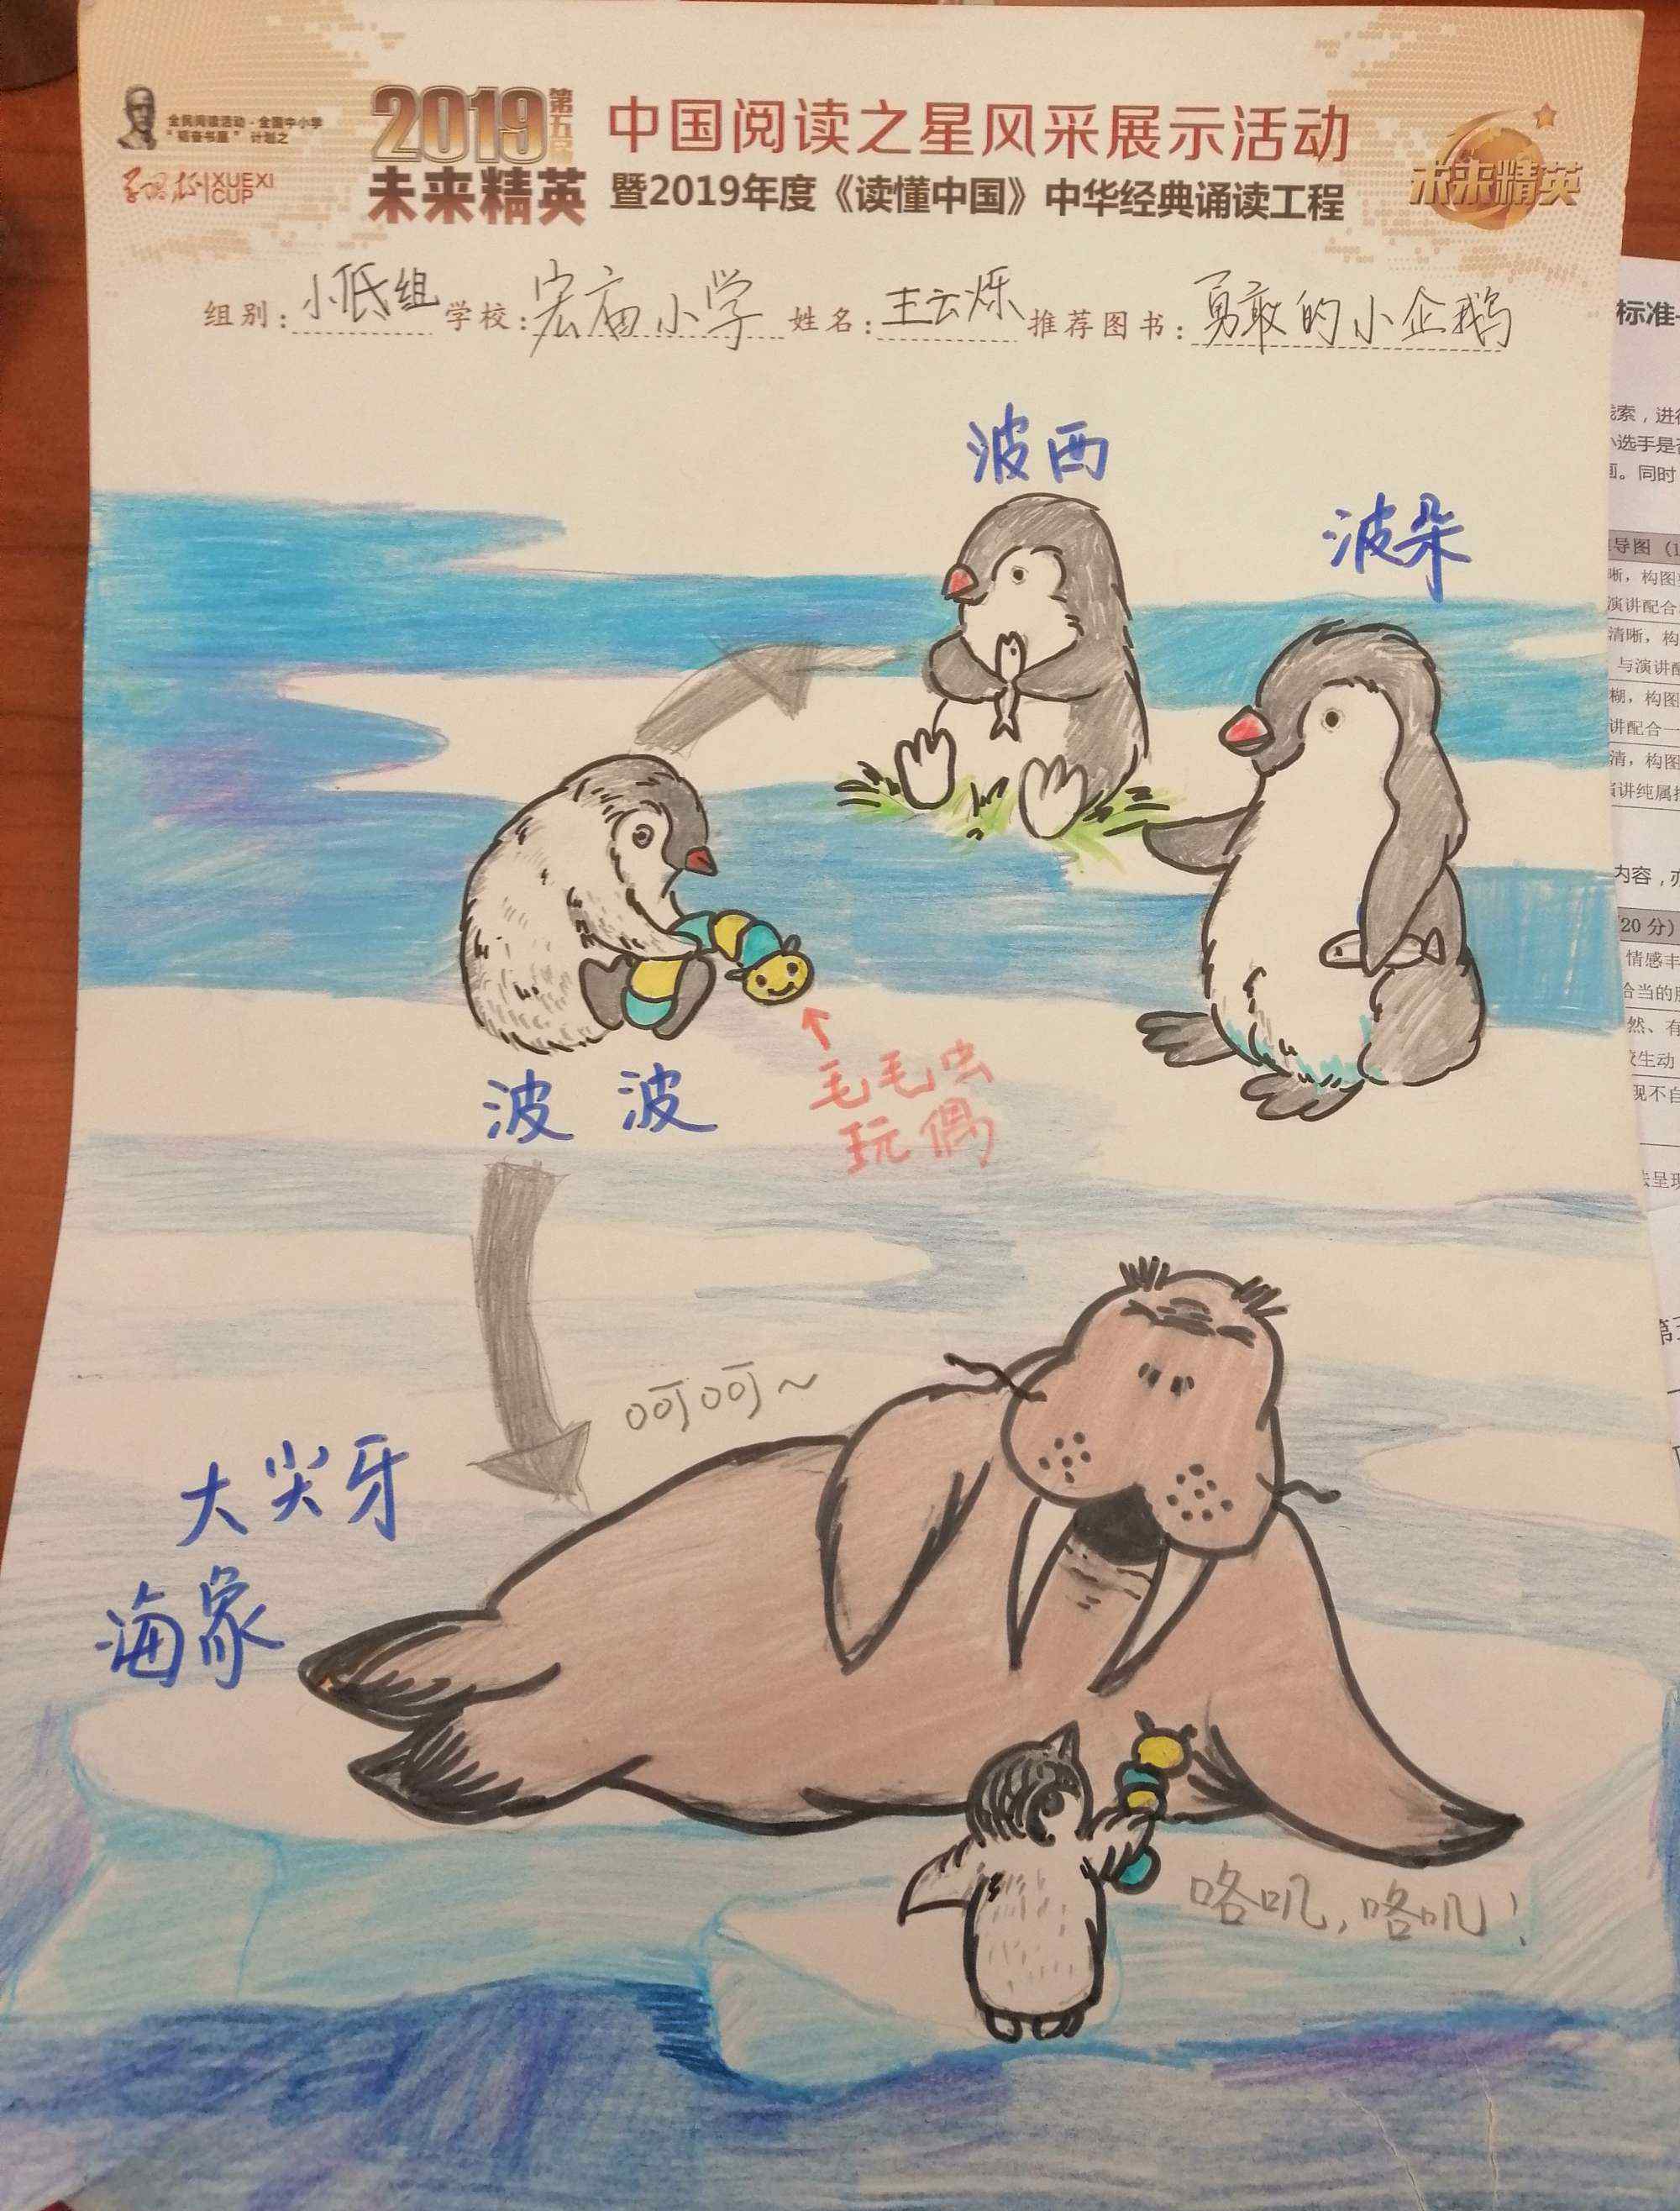 全民阅读活动·全国中小学
“韬奋书屋”计划之
XUEXI
CUP
2019第五届
未来精英
中国阅读之星风采展示活动
暨2019年度《读懂中国》中华经典诵读工程
未来精英
组别：小低组 学校：宏庙小学 姓名：王云烁 推荐图书：勇敢的小企鹅
波西
波朵
波波
毛毛虫
玩偶
呵呵~
大尖牙
海象
咯叽，咯叽！
标准
线索，进行
小选手是否
画。同时
导图（1
晰，构图
演讲配合
清晰，构
与演讲配
糊，构图
讲配合一
清，构图
演讲纯属
内容，亦
20分）
情感丰
恰当的
然、有
生动
现不自
法呈现